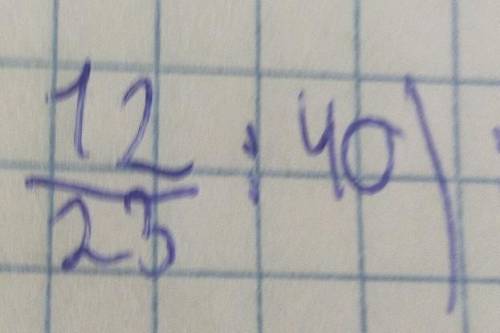 12/23 : 40)